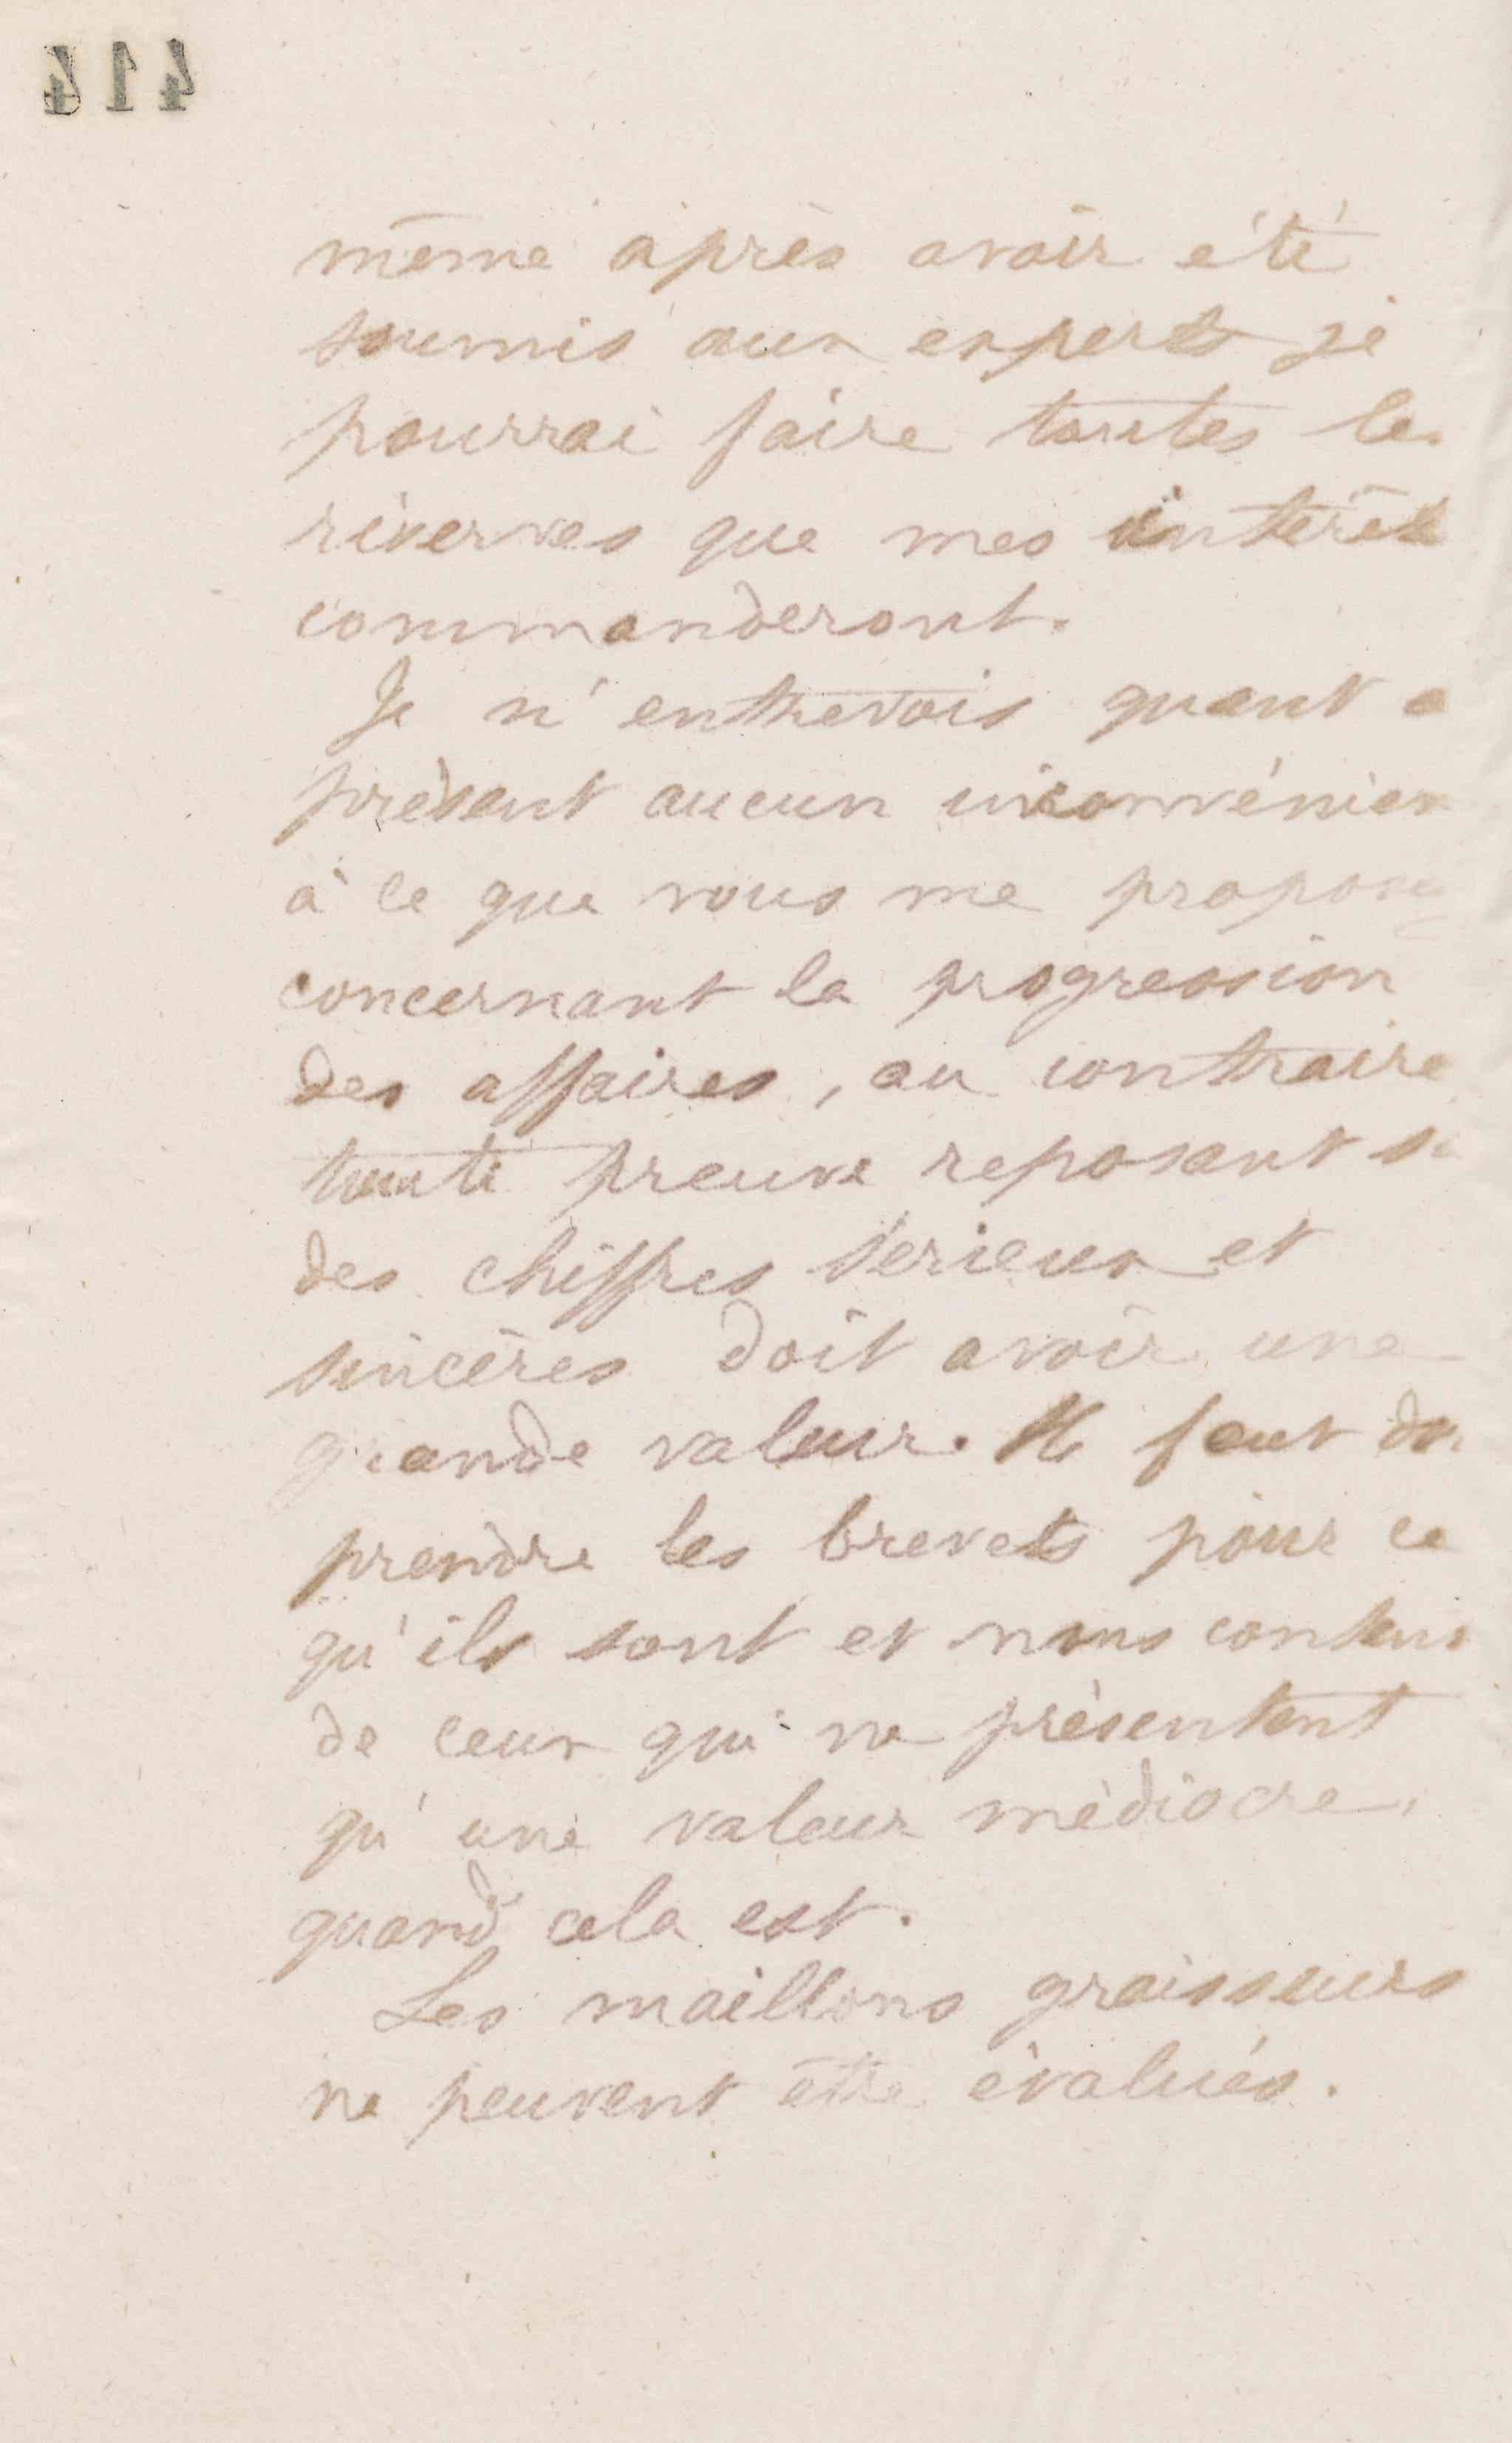 414
même après avoir été
soumis aux experts je
pourrai faire toutes les
réserves que mes intérêts
commanderont.
Je n'entrevois quant a
présent aucun inconvénien
à ce que vous me proposez
concernant la progression
des affaires, au contraire
toute preuve reposant
des chiffres sérieux et
sincères doit avoir une
grande valeur. Il faut
prendre les brevets pour ce
qu'ils sont et nous
de ceux qui ne présentent
qu'une valeur médiocre,
quand cela est.
Les maillons graisseurs
ne peuvent être évalués.